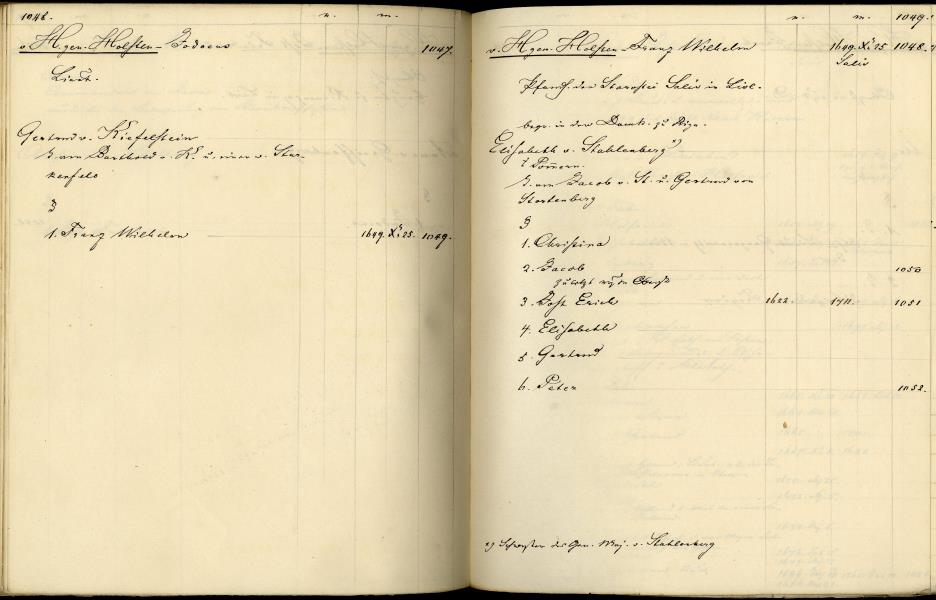 1048. n. m.
v. H. gen. Holsten- Jodocus 1047.
Lieut.
Gertrud v. Kiefelstein
T. von Barthold v. K. u. einer v. Star-
kenfels
3
1. Franz Wilhelm 1649. X. 25. 1049.
n. m. 1049.
v. H. gen. Holsten- Franz Wilhelm 1649. X. 25 1048.
Salis
Pfandh. der Starostei Salis in Livl.
begr. in der Domk. zu Riga.
Elisabeth v. Stahlenberg
† Pommern.
T. von Jacob v. St. u. Gertrud von
Stortenberg
3
1. Christina
2. Jacob 1050
zuletzt Oberst
3. Jost Erich 1622. 1711. 1051
4. Elisabeth
5. Gertrud
6. Peter 1052.
Schwester des Gen. Maj. v. Stahlenberg